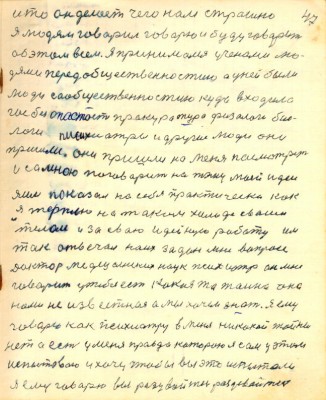 47
и то он делает чего нам страшно
я людям говорил говорю и буду говорить
об этом всем. Я принимался учеными лю-
дями перед общественностию а у ней были
люди с общественностию куда входило
госбизопастност прокуратура физолаги био-
логи психиатры и другие люди они
пришли. они пришли ко мне посмотреть
и самною поговорит на тему моей идеи
я им показал на себя практически как
я терплю на таком холоде своим
телом и за свою идейную работу им
так отвечал к нам задал мне вопрос
доктор медецинских наук психиатр он мне
говорит у тебя ест какая та тайна она
нами не известная а мы хочем знат. Я ему
говорю как психиатру в меня никакой тайны
нет а ест у меня правда которою я сам у этом
испытоваю и хочу чтобы вы это испытали
я ему говорю вы разувайтеся раздевайтеся